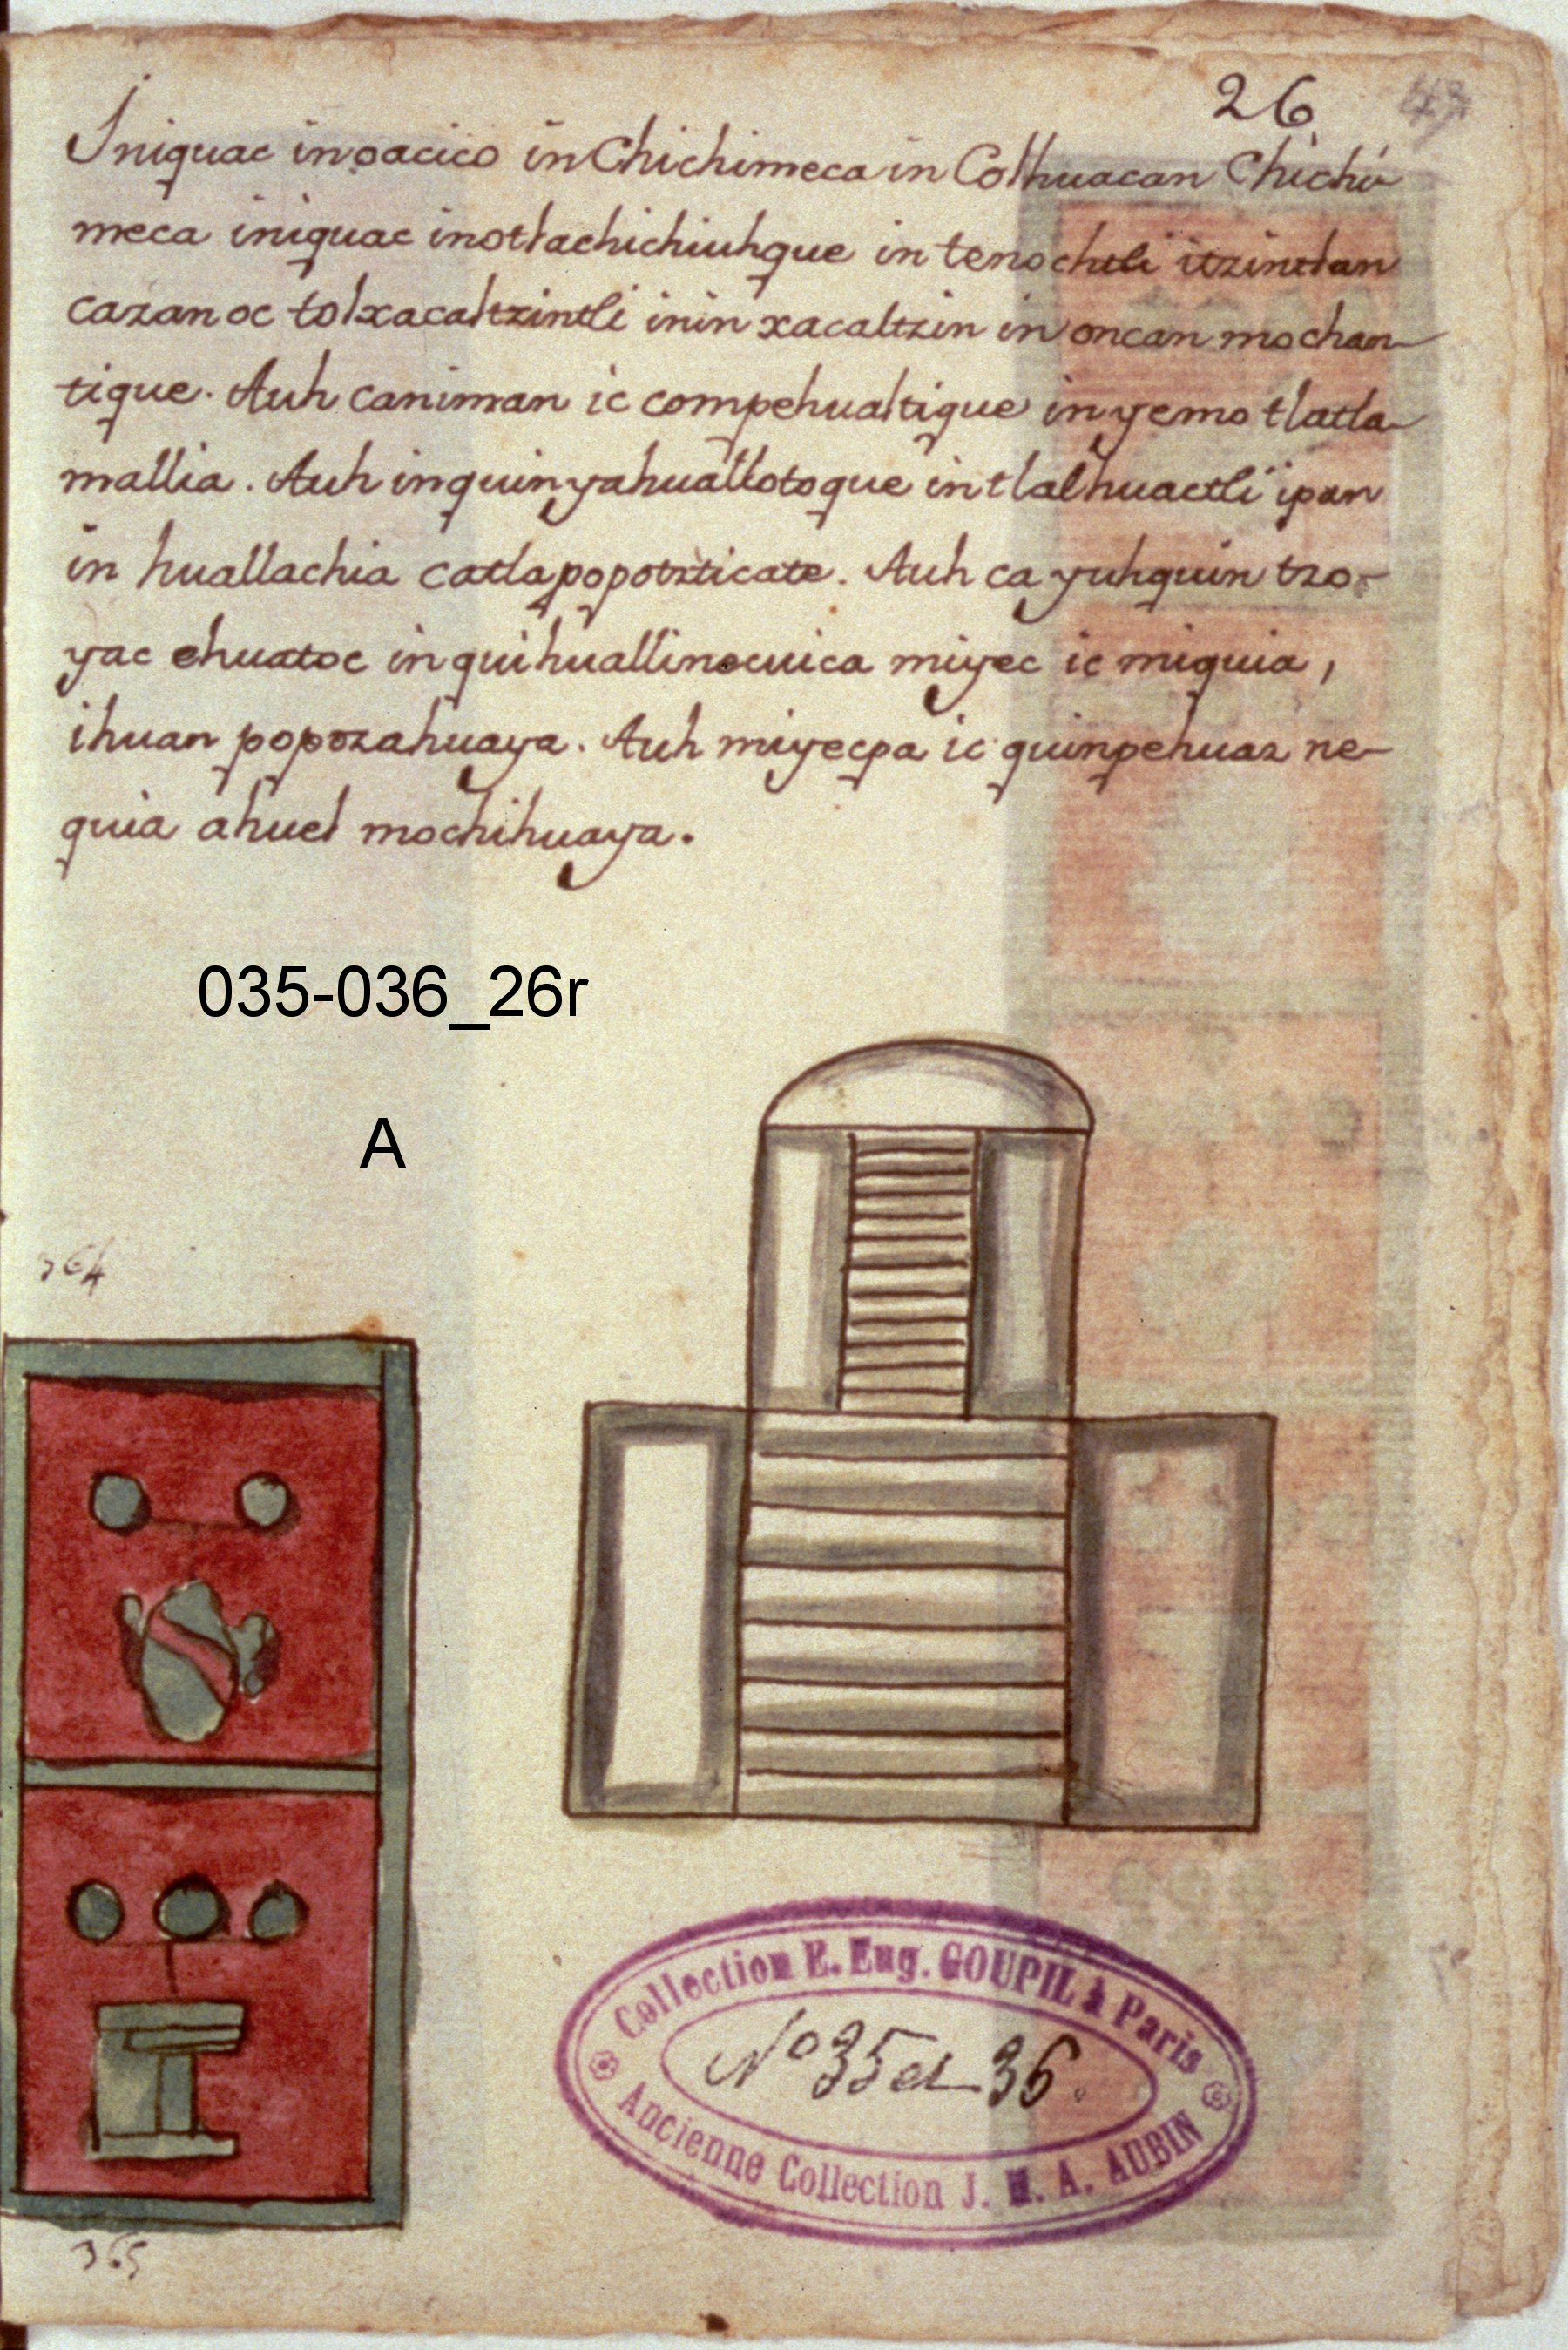 26
Iniquac inoacico in Chichimeca in Colhuacan Chichi
meca iniquac inotlachichiuhque in tenochtli itzintlan
cazan oc tolxacaltzintli inin xacaltzin in oncan mochan-
tique. Auh caniman ic compehualtique in yemo tlatla-
mallia. Auh inquinyahuallotoque in tlalhuactli ipan
in huallachia catlapopotzticate. Auh ca yuhquin tzo-
yac ehuatoc in quihuallinecuica miyec ic miquia,
ihuan popozahuaya. Auh miyecpa ic quinpehuaz ne-
quia ahuel mochihuaya.
035-036_26r
A
364
365
Collection E. Eug. GOUPIL à Paris
No 35 et 36.
Ancienne Collection J. M. A. AUBIN